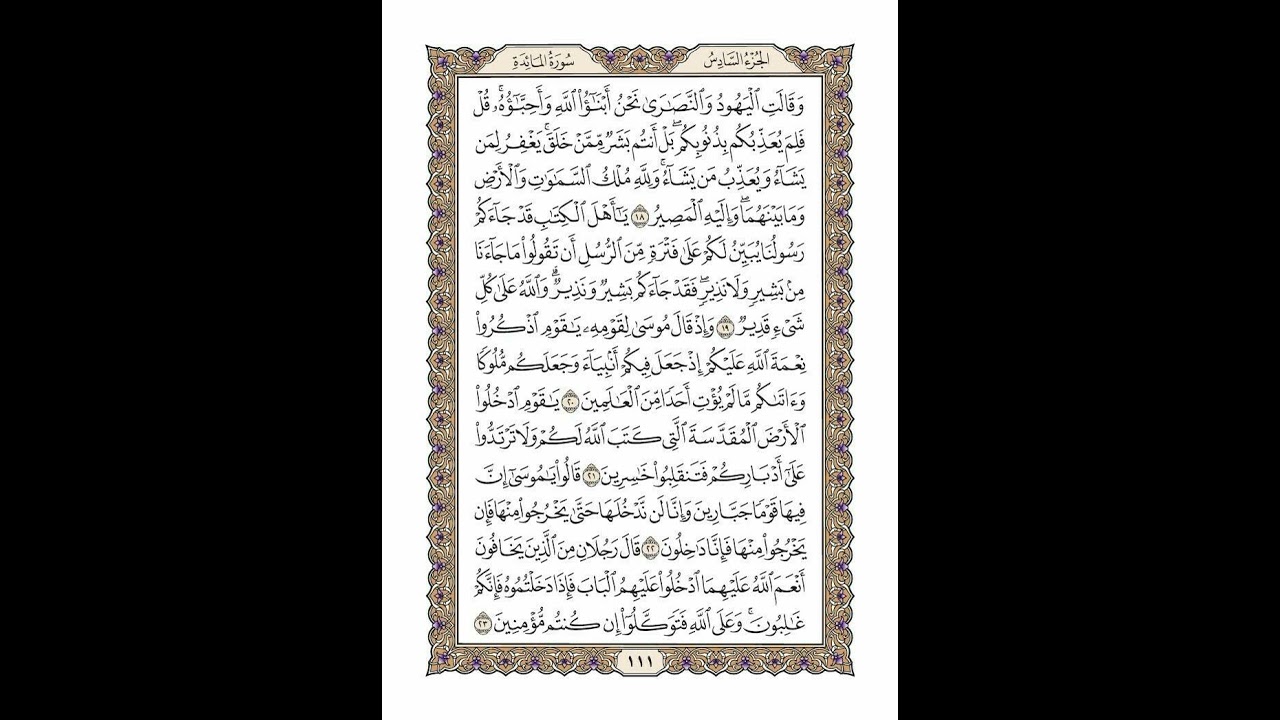 الجُزْءُ السَّادِسُ
سُورَةُ المَائِدَةِ
وَقَالَتِ ٱلْيَهُودُ وَٱلنَّصَٰرَىٰ نَحْنُ أَبْنَٰٓؤُا۟ ٱللَّهِ وَأَحِبَّٰٓؤُهُۥۚ قُلْ
فَلِمَ يُعَذِّبُكُم بِذُنُوبِكُمۖ بَلْ أَنتُم بَشَرٌ مِّمَّنْ خَلَقَۚ يَغْفِرُ لِمَن
يَشَآءُ وَيُعَذِّبُ مَن يَشَآءُۚ وَلِلَّهِ مُلْكُ ٱلسَّمَٰوَٰتِ وَٱلْأَرْضِ
وَمَا بَيْنَهُمَاۖ وَإِلَيْهِ ٱلْمَصِيرُ ١٨ يَٰٓأَهْلَ ٱلْكِتَٰبِ قَدْ جَآءَكُمْ
رَسُولُنَا يُبَيِّنُ لَكُمْ عَلَىٰ فَتْرَةٍ مِّنَ ٱلرُّسُلِ أَن تَقُولُوا۟ مَا جَآءَنَا
مِنۢ بَشِيرٍ وَلَا نَذِيرٍۖ فَقَدْ جَآءَكُم بَشِيرٌ وَنَذِيرٌۗ وَٱللَّهُ عَلَىٰ كُلِّ
شَىْءٍ قَدِيرٌ ١٩ وَإِذْ قَالَ مُوسَىٰ لِقَوْمِهِۦ يَٰقَوْمِ ٱذْكُرُوا۟
نِعْمَةَ ٱللَّهِ عَلَيْكُمْ إِذْ جَعَلَ فِيكُمْ أَنۢبِيَآءَ وَجَعَلَكُم مُّلُوكًا
وَءَاتَىٰكُم مَّا لَمْ يُؤْتِ أَحَدًا مِّنَ ٱلْعَٰلَمِينَ ٢٠ يَٰقَوْمِ ٱدْخُلُوا۟
ٱلْأَرْضَ ٱلْمُقَدَّسَةَ ٱلَّتِى كَتَبَ ٱللَّهُ لَكُمْ وَلَا تَرْتَدُّوا۟
عَلَىٰٓ أَدْبَارِكُمْ فَتَنقَلِبُوا۟ خَٰسِرِينَ ٢١ قَالُوا۟ يَٰمُوسَىٰٓ إِنَّ
فِيهَا قَوْمًا جَبَّارِينَ وَإِنَّا لَن نَّدْخُلَهَا حَتَّىٰ يَخْرُجُوا۟ مِنْهَا فَإِن
يَخْرُجُوا۟ مِنْهَا فَإِنَّا دَٰخِلُونَ ٢٢ قَالَ رَجُلَانِ مِنَ ٱلَّذِينَ يَخَافُونَ
أَنْعَمَ ٱللَّهُ عَلَيْهِمَا ٱدْخُلُوا۟ عَلَيْهِمُ ٱلْبَابَ فَإِذَا دَخَلْتُمُوهُ فَإِنَّكُمْ
غَٰلِبُونَۚ وَعَلَى ٱللَّهِ فَتَوَكَّلُوٓا۟ إِن كُنتُم مُّؤْمِنِينَ ٢٣
١١١